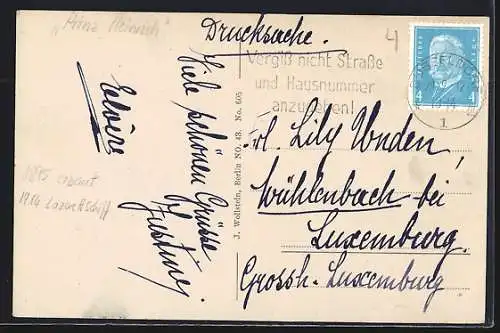 "Prinz Heinrich"
Drucksache.
4
Vergiß nicht Straße
und Hausnummer
anzugeben!
DEUTSCHES REICH
4 4
1
Viele schönen Grüsse
Elvire
1916 Lazarettschiff
J. Wollstein, Berlin NO. 43. No. 605
Frl. Lily Unden,
Mühlenbach bei
Luxemburg.
Grossh. Luxemburg